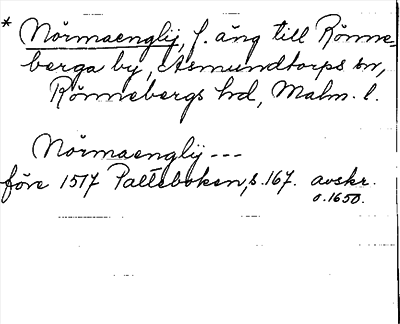 * Nörmaenglij, f. äng till Rönne-
berga by, Asmundtorps sn,
Rönnebergs hd, Malm. l.
Nörmaenglij ---
före 1517 Palteboken, s. 167. avskr.
o. 1650.